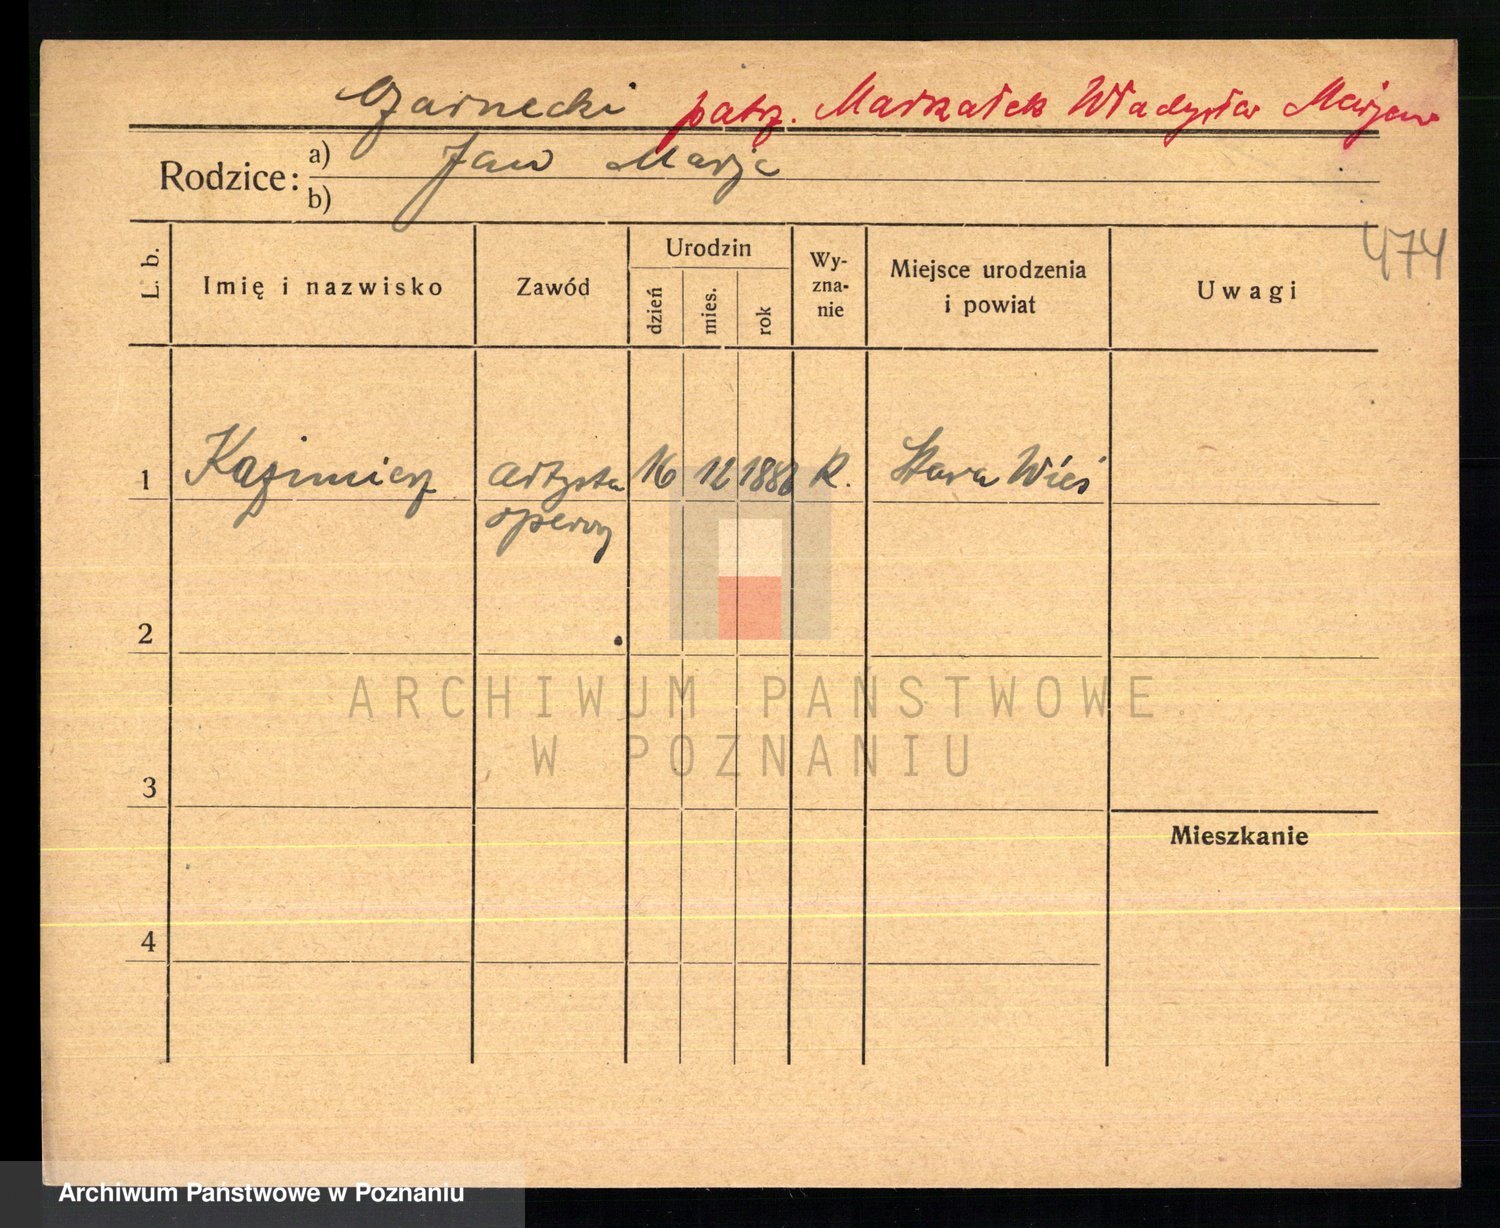 Czarnecki patrz. Marszałek Władysław Marjan
Rodzice: a) Jan Marja
b)
474
L. b.
Imię i nazwisko
Zawód
Urodzin
dzień
mies.
rok
Wy-
zna-
nie
Miejsce urodzenia
i powiat
Uwagi
1 Kazimierz artysta 16 12 188 R. Stara Wieś
operowy
2
3
4
Mieszkanie
ARCHIWUM PAŃSTWOWE
W POZNANIU
Archiwum Państwowe w Poznaniu